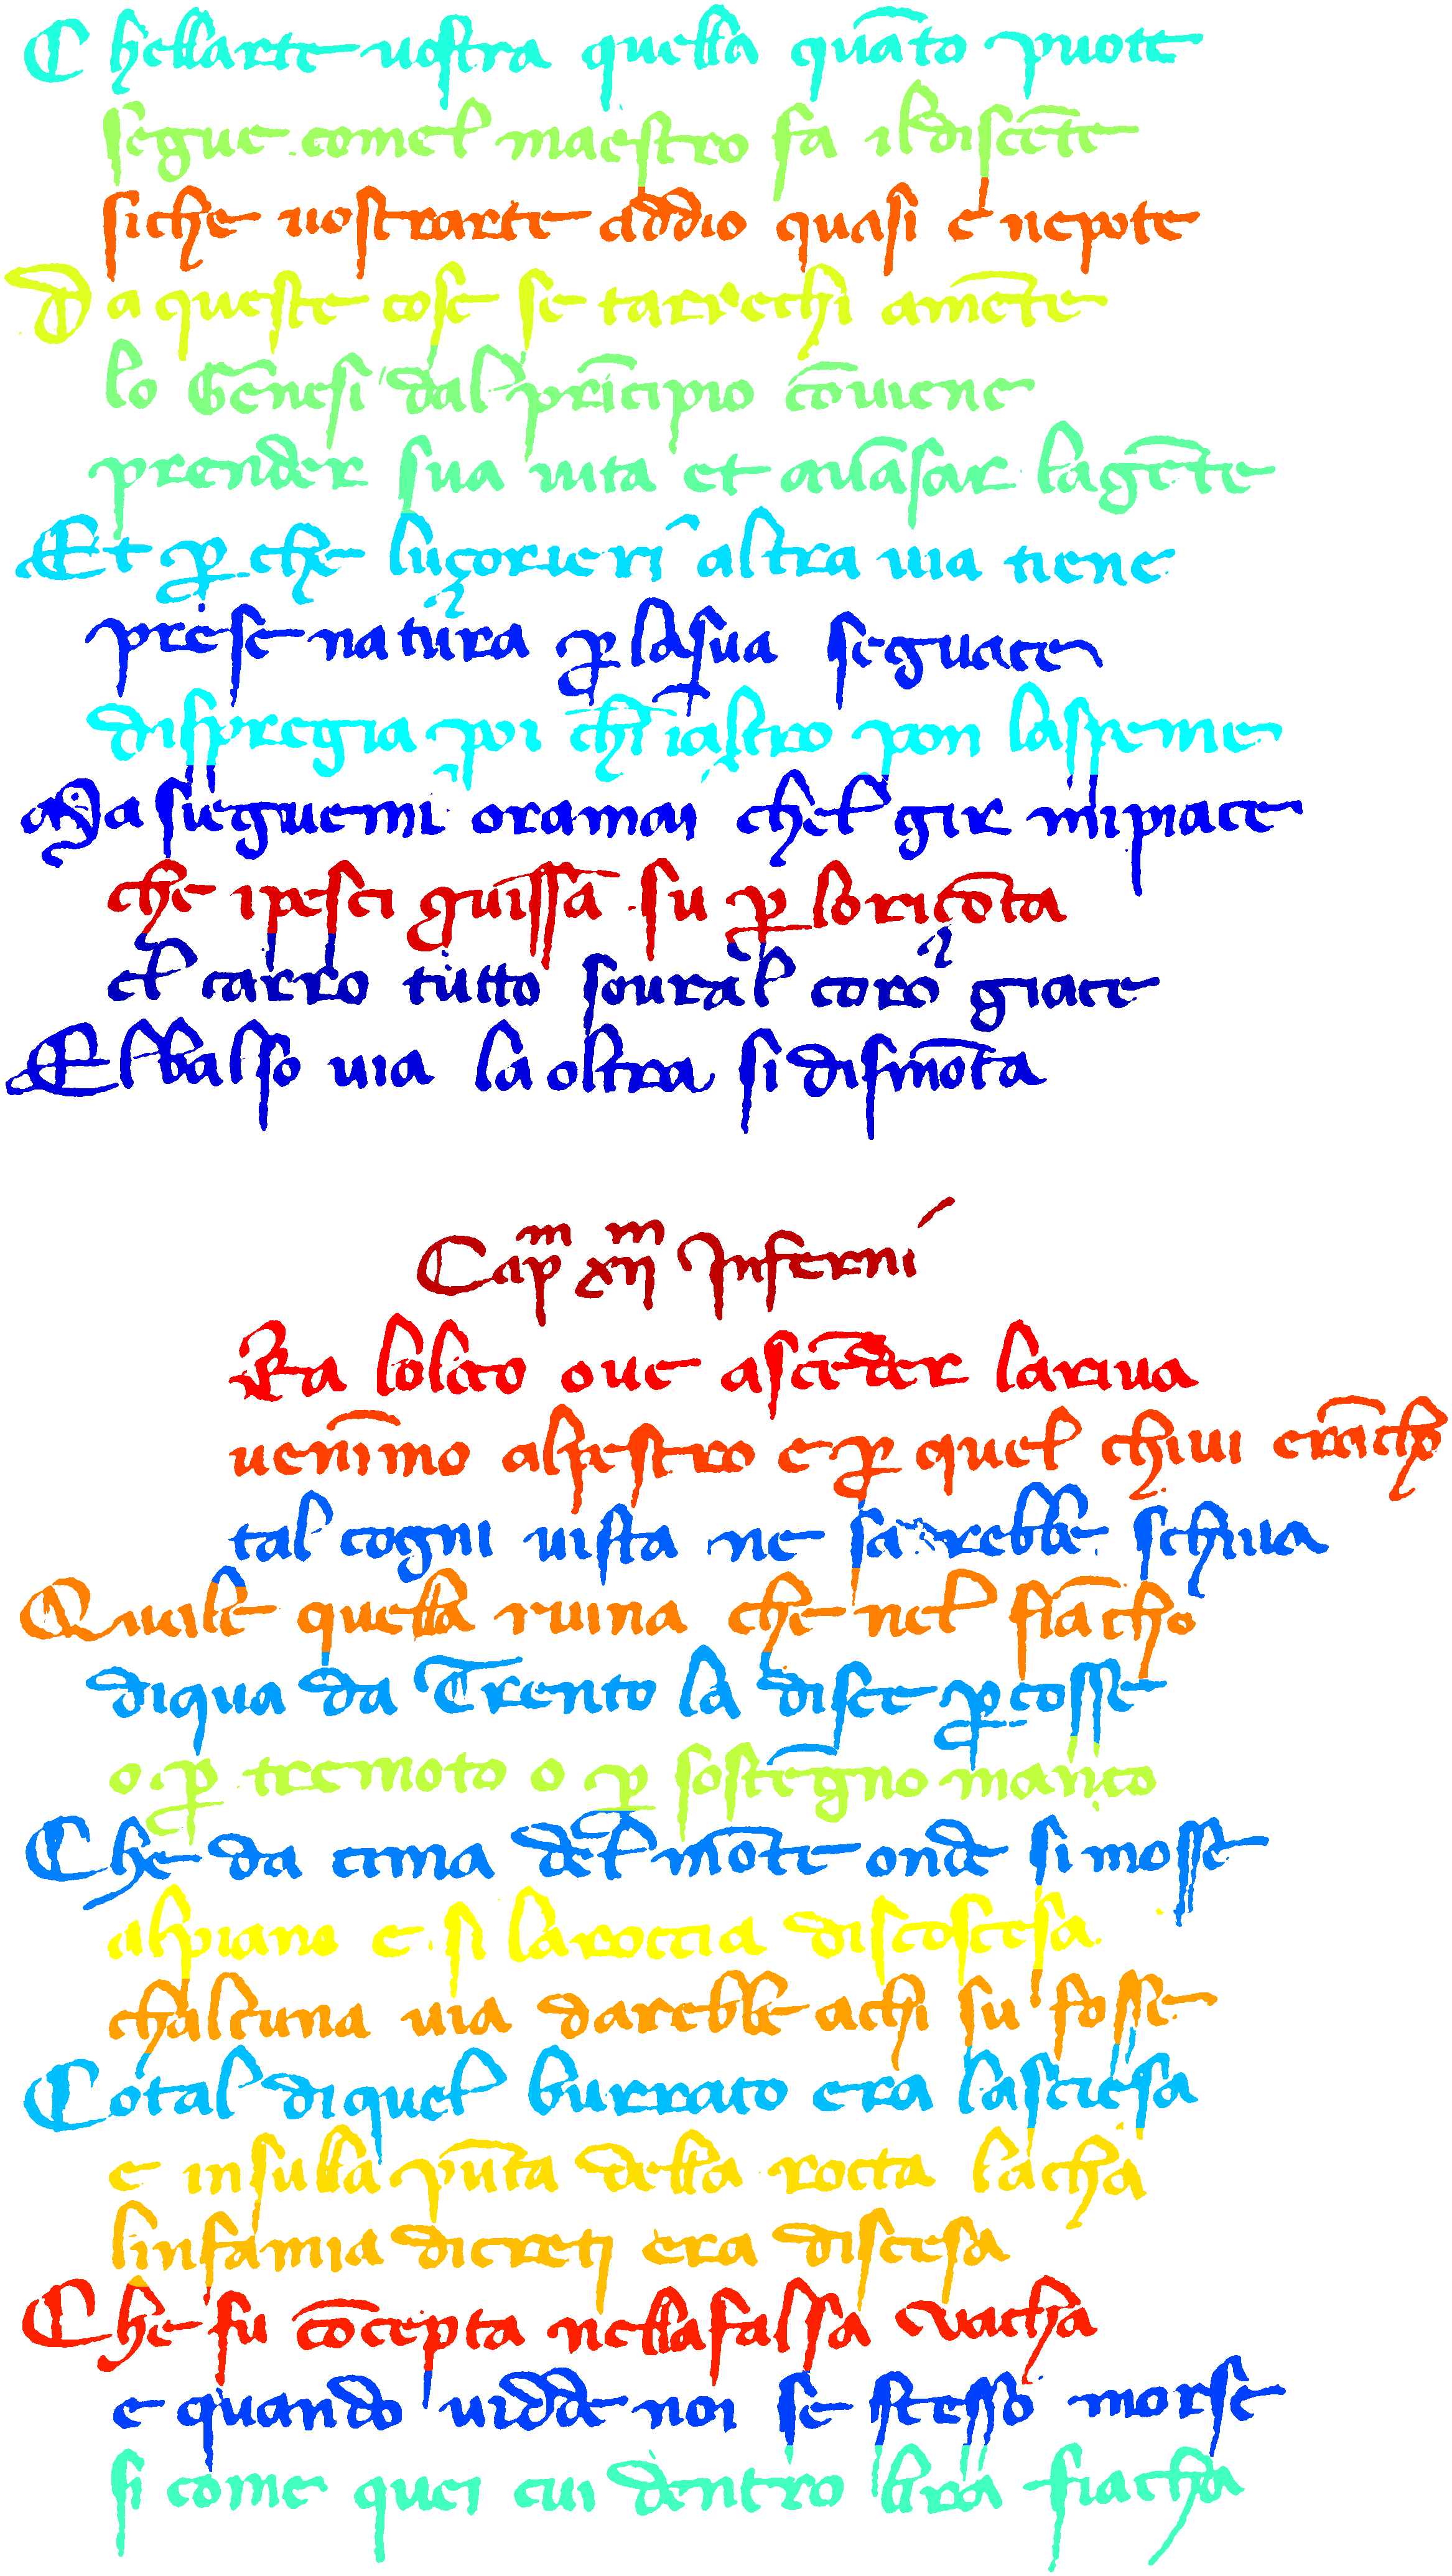 C hellarte uostra quella quãto puote
segue comel maestro fa ildiscẽte
siche uostrarte addio quasi e nepote
D a queste cose se tarrechi amẽte
lo Gẽnesi dal prĩcipio cõuiene
prender sua uita et auãsar lagẽte
Et ꝑ che luçorieri altra uia tiene
prese natura ꝑ lasua seguace
dispregia poi chĩ altro pon laspeme
Ma sieguemi oramai chel gir mipiace
che ipesci guissã su ꝑ loriçõta
el carro tutto soural coro giace
El balso uia la oltra si dismõta
Capᵐ xijᵐ Inferni
Era loloco oue ascẽder lariua
uenĩmo alpestro e ꝑ quel chiui erãcho
tal cogni uista ne sarebbe schiua
Qual e quella ruina che nel fiãcho
diqua da Trento la disce ꝑcosse
o ꝑ tremoto o ꝑ sostegno manco
Che da cima del mõte onde si mosse
alpiano e si laroccia discoscesa
chalcuna uia darebbe achi su fosse
Cotal diquel burrato era lasciesa
e insulla pũta della rocta lacha
linfamia dicreti era discesa
Che fu cõcepta nellafalsa uacha
e quando uidde noi se stesso morse
si come quei cui dentro lira fiacha